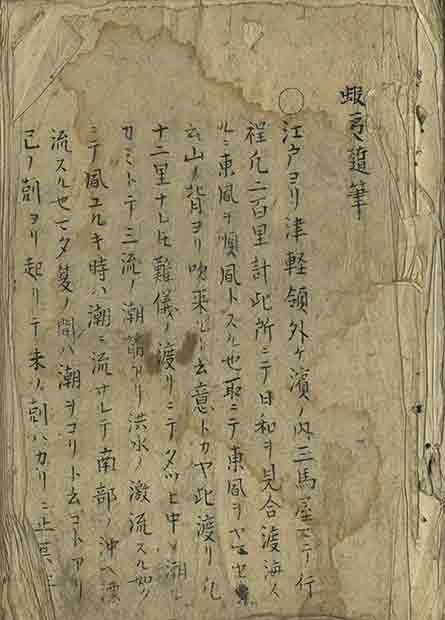 蝦夷随筆
○江戸ヨリ津軽領外ケ濱ノ内三馬屋マテ行
程凡二百里計此所ニテ日和ヲ見合渡海ス
ルニ東風ヲ順風トスル也取ニテ東風ヲヤマセ
云山ノ背ヨリ吹来ルト云意トカヤ此渡リ凡
十二里ナレトモ難儀ノ渡リニテタツヒ中ノ潮シ
カミトテ三流ノ潮筋アリ洪水ノ激流スル如ク
ニテ風ユルキ時ハ潮ニ流サレテ南部ノ沖ヘ漂
流スル也セタ夏ノ間ハ潮ヲコリト云コトアリ
巳ノ刻ヨリ起リテ未ノ刻ハカリニ止